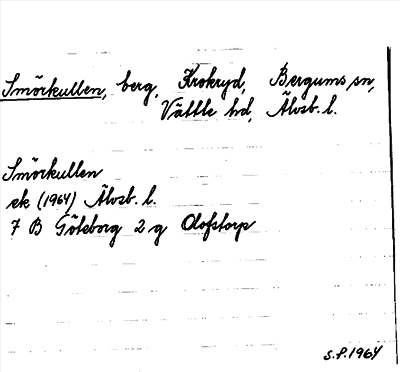 Smörkullen, berg, Krokryd, Bergums sn,
Vättle hd, Älvsb. l.
Smörkullen
ek (1964) Älvsb. l.
7 B Göteborg 2 g Olofstorp
S.P. 1964